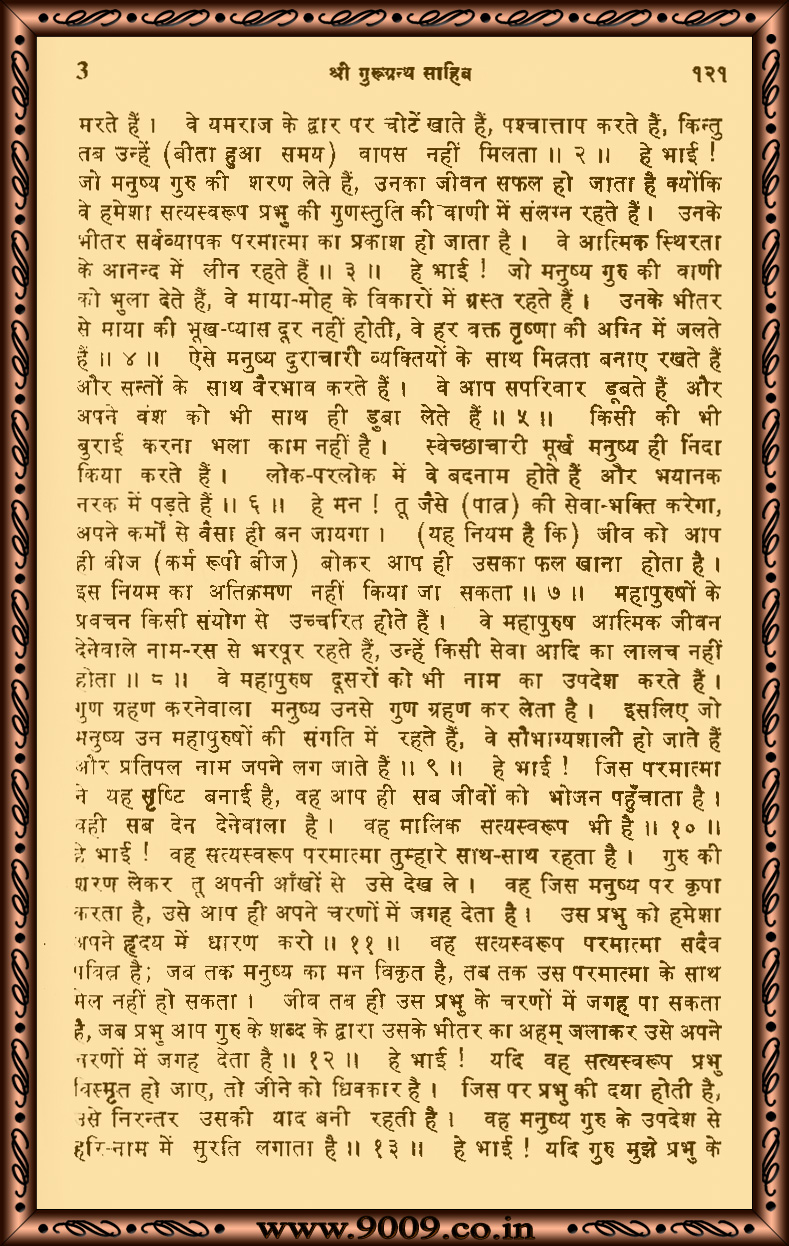 3 श्री गुरूग्रन्थ साहिब १२१
मरते हैं । वे यमराज के द्वार पर चोटें खाते हैं, पश्चात्ताप करते हैं, किन्तु
तब उन्हें (बीता हुआ समय) वापस नहीं मिलता ॥ २ ॥ हे भाई !
जो मनुष्य गुरु की शरण लेते हैं, उनका जीवन सफल हो जाता है क्योंकि
वे हमेशा सत्यस्वरूप प्रभु की गुणस्तुति की वाणी में संलग्न रहते हैं । उनके
भीतर सर्वव्यापक परमात्मा का प्रकाश हो जाता है । वे आत्मिक स्थिरता
के आनन्द में लीन रहते हैं ॥ ३ ॥ हे भाई ! जो मनुष्य गुरु की वाणी
को भुला देते हैं, वे माया-मोह के विकारों में ग्रस्त रहते हैं । उनके भीतर
से माया की भूख-प्यास दूर नहीं होती, वे हर वक्त तृष्णा की अग्नि में जलते
हैं ॥ ४ ॥ ऐसे मनुष्य दुराचारी व्यक्तियों के साथ मित्रता बनाए रखते हैं
और सन्तों के साथ वैरभाव करते हैं । वे आप सपरिवार डूबते हैं और
अपने वंश को भी साथ ही डुबा लेते हैं ॥ ५ ॥ किसी की भी
बुराई करना भला काम नहीं है । स्वेच्छाचारी मूर्ख मनुष्य ही निंदा
किया करते हैं । लोक-परलोक में वे बदनाम होते हैं और भयानक
नरक में पड़ते हैं ॥ ६ ॥ हे मन ! तू जैसे (पात्र) की सेवा-भक्ति करेगा,
अपने कर्मों से वैसा ही बन जायगा । (यह नियम है कि) जीव को आप
ही बीज (कर्म रूपी बीज) बोकर आप ही उसका फल खाना होता है ।
इस नियम का अतिक्रमण नहीं किया जा सकता ॥ ७ ॥ महापुरुषों के
प्रवचन किसी संयोग से उच्चरित होते हैं । वे महापुरुष आत्मिक जीवन
देनेवाले नाम-रस से भरपूर रहते हैं, उन्हें किसी सेवा आदि का लालच नहीं
होता ॥ ८ ॥ वे महापुरुष दूसरों को भी नाम का उपदेश करते हैं ।
गुण ग्रहण करनेवाला मनुष्य उनसे गुण ग्रहण कर लेता है । इसलिए जो
मनुष्य उन महापुरुषों की संगति में रहते हैं, वे सौभाग्यशाली हो जाते हैं
और प्रतिपल नाम जपने लग जाते हैं ॥ ९ ॥ हे भाई ! जिस परमात्मा
ने यह सृष्टि बनाई है, वह आप ही सब जीवों को भोजन पहुँचाता है ।
वही सब देन देनेवाला है । वह मालिक सत्यस्वरूप भी है ॥ १० ॥
हे भाई ! वह सत्यस्वरूप परमात्मा तुम्हारे साथ-साथ रहता है । गुरु की
शरण लेकर तू अपनी आँखों से उसे देख ले । वह जिस मनुष्य पर कृपा
करता है, उसे आप ही अपने चरणों में जगह देता है । उस प्रभु को हमेशा
अपने हृदय में धारण करो ॥ ११ ॥ वह सत्यस्वरूप परमात्मा सदैव
पवित्र है; जब तक मनुष्य का मन विकृत है, तब तक उस परमात्मा के साथ
मेल नहीं हो सकता । जीव तब ही उस प्रभु के चरणों में जगह पा सकता
है, जब प्रभु आप गुरु के शब्द के द्वारा उसके भीतर का अहम् जलाकर उसे अपने
चरणों में जगह देता है ॥ १२ ॥ हे भाई ! यदि वह सत्यस्वरूप प्रभु
विस्मृत हो जाए, तो जीने को धिक्कार है । जिस पर प्रभु की दया होती है,
उसे निरन्तर उसकी याद बनी रहती है । वह मनुष्य गुरु के उपदेश से
हरि-नाम में सुरति लगाता है ॥ १३ ॥ हे भाई ! यदि गुरु मुझे प्रभु के
www.9009.co.in